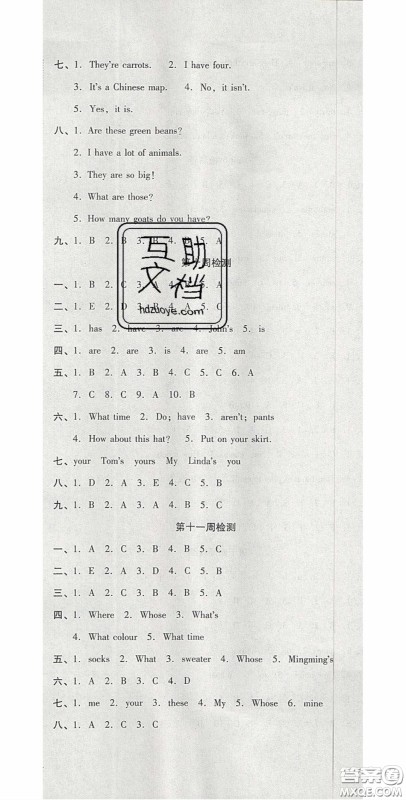 七、1. They're carrots. 2. I have four.
3. It's a Chinese map. 4. No, it isn't.
5. Yes, it is.
八、1. Are these green beans?
2. I have a lot of animals.
3. They are so big!
4. What are those?
5. How many goats do you have?
九、1. B 2. B 3. B 4. B 5. A
第十周检测
一、1. B 2. C
二、1. E 2. D
三、1. has 2. have 3. are 4. John's 5. is
四、1. are 2. are 3. is 4. are 5. am
五、1. B 2. A 3. B 4. C 5. C 6. A
7. C 8. C 9. A 10. B
六、1. What time 2. Do; have 3. aren't; pants
4. How about this hat? 5. Put on your skirt.
七、your Tom's yours My Linda's you
八、1. D 2. A 3. E 4. C 5. B
九、1. B 2. A 3. C 4. A 5. B
第十一周检测
一、1. A 2. C 3. B 4. B 5. C
二、1. E 2. A 3. D 4. C 5. B
三、1. A 2. C 3. B 4. B 5. A
四、1. Where 2. Whose 3. What's
4. What colour 5. What time
五、1. socks 2. What 3. sweater 4. Whose 5. Mingming's
六、1. A 2. C 3. B 4. D
七、1. me 2. your 3. these 4. My 5. Whose 6. mine
八、1. A 2. C 3. C
互助文档
hdzuoye.com
答案圈
MXQE.COM